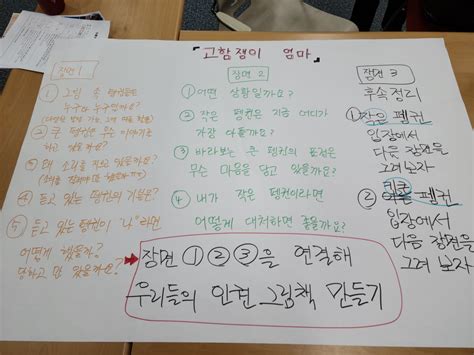 「고함쟁이 엄마」
장면 1
① 그림 속 펭귄들은
누구와 누구일까요?
② 큰 펭귄은 무슨 이야기를
하고 있을까?
③ 왜 소리를 지르고 있을까요?
④ 듣고 있는 펭귄의 기분은?
⑤ 듣고 있는 펭귄이 "나"라면
어떻게 했을까?
당하고만 있을까요?
장면 2
① 어떤 상황일까요?
② 작은 펭귄은 지금 어디가
가장 아플까요?
③ 바라보는 큰 펭귄의 표정은
무슨 마음을 담고 있을까요?
④ 내가 작은 펭귄이라면
어떻게 대처하면 좋을까요?
장면 3
후속 정리
① 작은 펭귄
입장에서
다음 장면을
그려보자
② 펭귄
입장에서
다음 장면을
그려 보자
장면 ① ② ③을 연결해
우리들의 안전 그림책 만들기